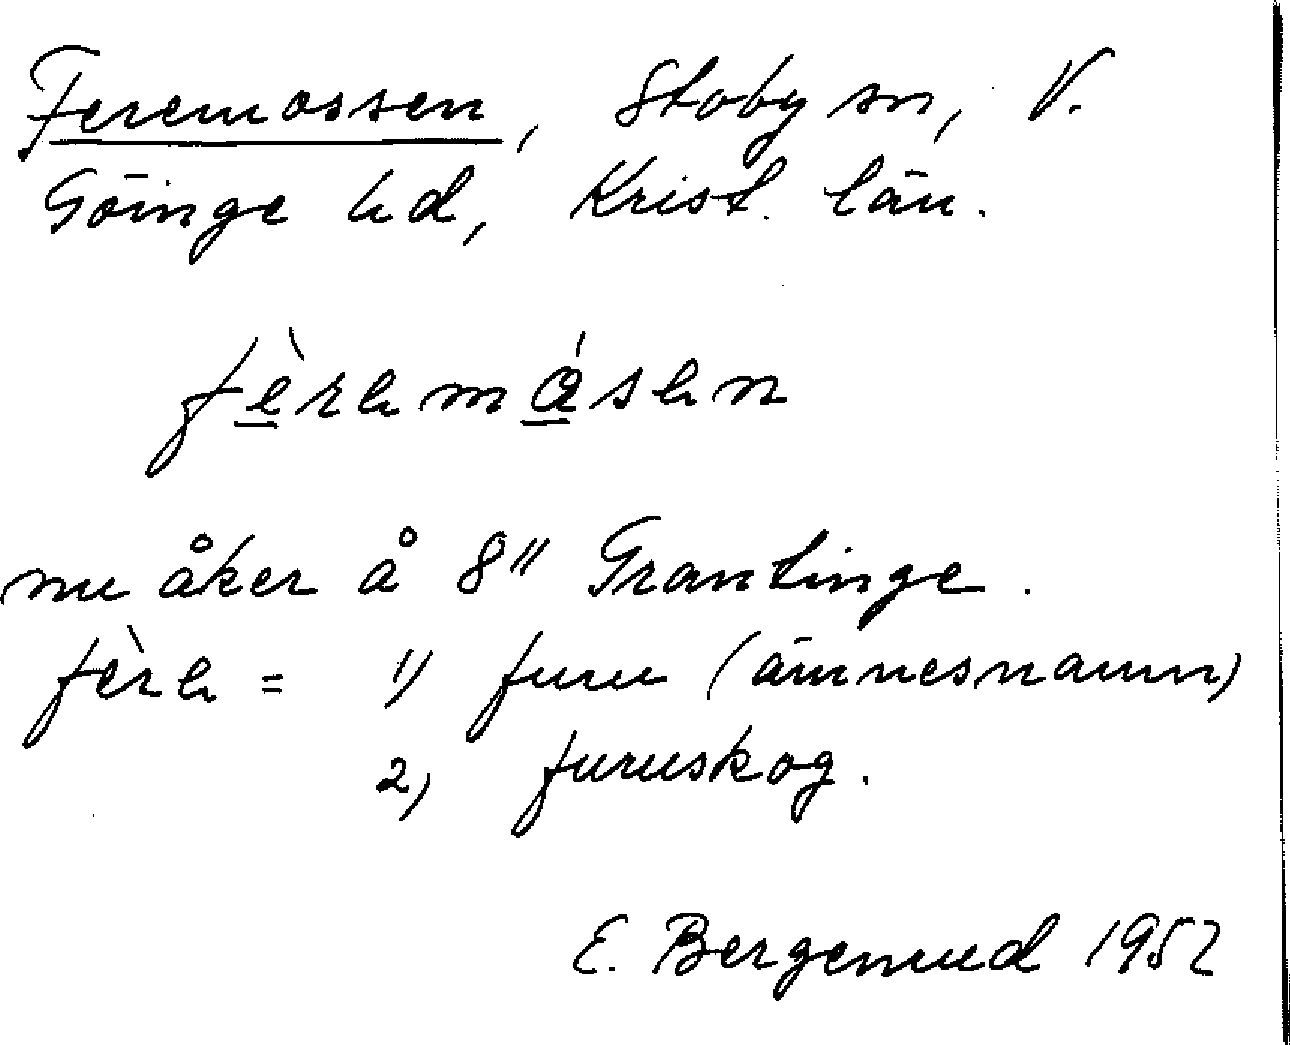 Feremossen, Stoby sn, V.
Göinge hd, Krist. län.
fèrəmásən
nu åker å 8" Grantinge.
fèrə = 1) furu (ämnesnamn)
2) furuskog.
E. Bergemud 1952